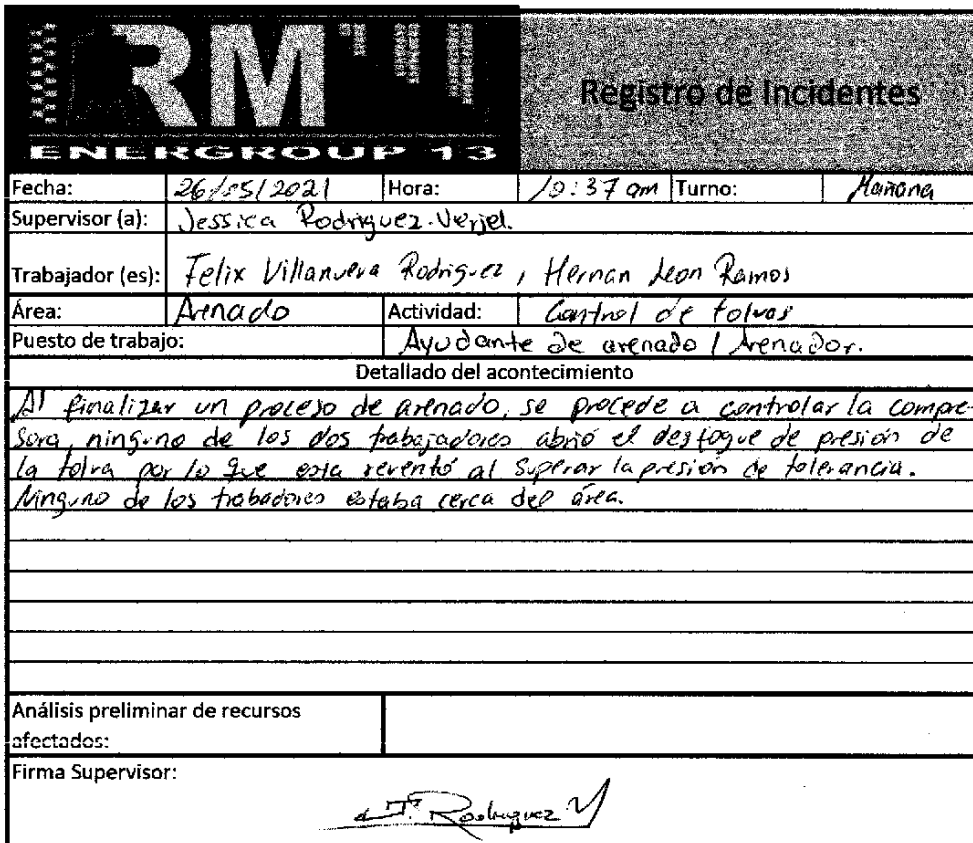 RM
ENERGROUP 13
Registro de Incidentes
Fecha: 26/05/2021 Hora: 10:37 am Turno: Mañana
Supervisor (a): Jessica Rodriguez Verjel.
Trabajador (es): Felix Villanueva Rodriguez, Hernan Leon Ramos
Área: Arenado Actividad: Control de tolvas
Puesto de trabajo: Ayudante de arenado / Arenador.
Detallado del acontecimiento
Al finalizar un proceso de arenado, se procede a controlar la compre-
sora, ninguno de los dos trabajadores abrió el desfogue de presión de
la tolva por lo que esta reventó al superar la presión de tolerancia.
Ninguno de los trabadores estaba cerca del área.
Análisis preliminar de recursos
afectados:
Firma Supervisor:
J. Rodriguez V